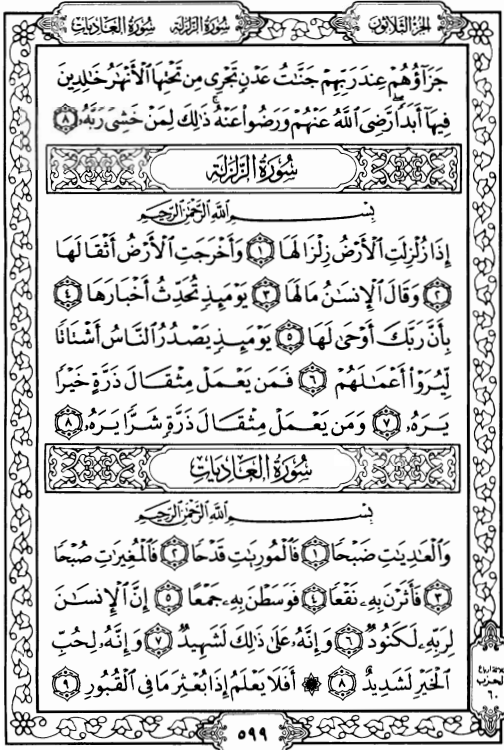 سُورَةُ العَادِيَاتِ سُورَةُ الزَّلْزَلَةِ الجُزْءُ الثَّلَاثُونَ
جَزَآؤُهُمْ عِندَ رَبِّهِمْ جَنَّٰتُ عَدْنٍ تَجْرِى مِن تَحْتِهَا ٱلْأَنْهَٰرُ خَٰلِدِينَ
فِيهَآ أَبَدًا ۖ رَّضِىَ ٱللَّهُ عَنْهُمْ وَرَضُوا۟ عَنْهُ ۚ ذَٰلِكَ لِمَنْ خَشِىَ رَبَّهُۥ ٨
سُورَةُ الزَّلْزَلَةِ
بِسْمِ ٱللَّهِ ٱلرَّحْمَٰنِ ٱلرَّحِيمِ
إِذَا زُلْزِلَتِ ٱلْأَرْضُ زِلْزَالَهَا ١ وَأَخْرَجَتِ ٱلْأَرْضُ أَثْقَالَهَا
٢ وَقَالَ ٱلْإِنسَٰنُ مَا لَهَا ٣ يَوْمَئِذٍ تُحَدِّثُ أَخْبَارَهَا ٤
بِأَنَّ رَبَّكَ أَوْحَىٰ لَهَا ٥ يَوْمَئِذٍ يَصْدُرُ ٱلنَّاسُ أَشْتَاتًا
لِّيُرَوْا۟ أَعْمَٰلَهُمْ ٦ فَمَن يَعْمَلْ مِثْقَالَ ذَرَّةٍ خَيْرًا
يَرَهُۥ ٧ وَمَن يَعْمَلْ مِثْقَالَ ذَرَّةٍ شَرًّا يَرَهُۥ ٨
سُورَةُ العَادِيَاتِ
بِسْمِ ٱللَّهِ ٱلرَّحْمَٰنِ ٱلرَّحِيمِ
وَٱلْعَٰدِيَٰتِ ضَبْحًا ١ فَٱلْمُورِيَٰتِ قَدْحًا ٢ فَٱلْمُغِيرَٰتِ صُبْحًا
٣ فَأَثَرْنَ بِهِۦ نَقْعًا ٤ فَوَسَطْنَ بِهِۦ جَمْعًا ٥ إِنَّ ٱلْإِنسَٰنَ
لِرَبِّهِۦ لَكَنُودٌ ٦ وَإِنَّهُۥ عَلَىٰ ذَٰلِكَ لَشَهِيدٌ ٧ وَإِنَّهُۥ لِحُبِّ
ٱلْخَيْرِ لَشَدِيدٌ ٨ ۞ أَفَلَا يَعْلَمُ إِذَا بُعْثِرَ مَا فِى ٱلْقُبُورِ ٩
الحزب
٦٠
٥٩٩